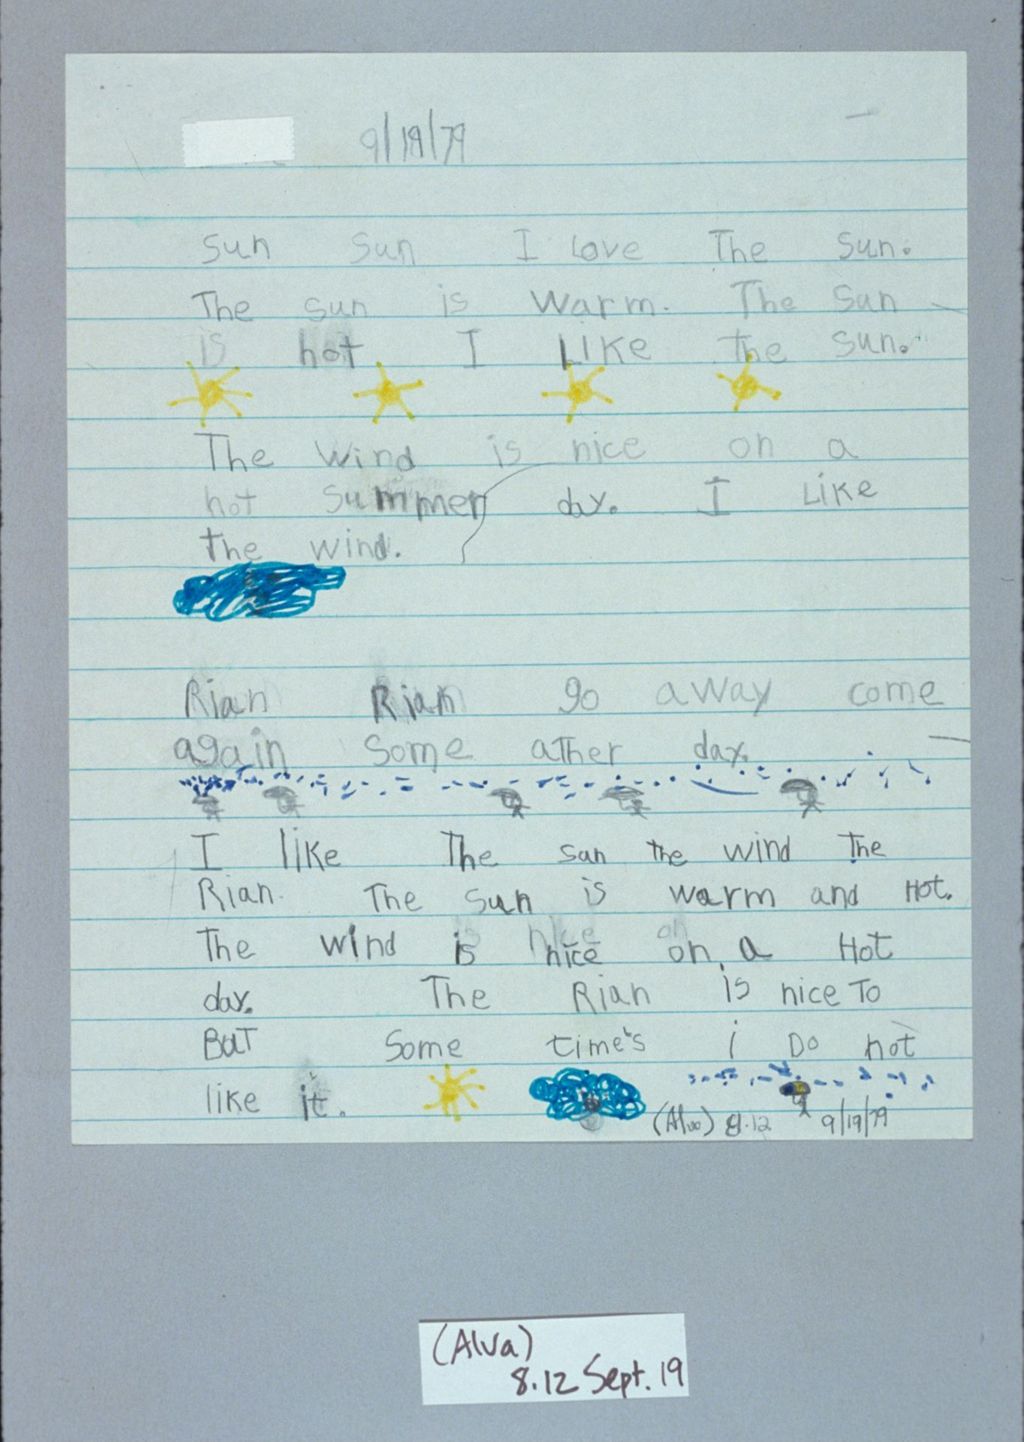 9/19/79
Sun Sun I Love The Sun.
The sun is warm. The Sun
is hot I Like the Sun.
The wind is nice on a
hot summer day. I Like
the wind.
Rian Rian go away come
again some ather day.
I like The sun the wind The
Rian. The sun is warm and Hot.
The wind is nice on a Hot
day. The Rian is nice To
BuT Some time's i Do not
like it.
(Alva) 8.12 9/19/79
(Alva)
8.12 Sept. 19